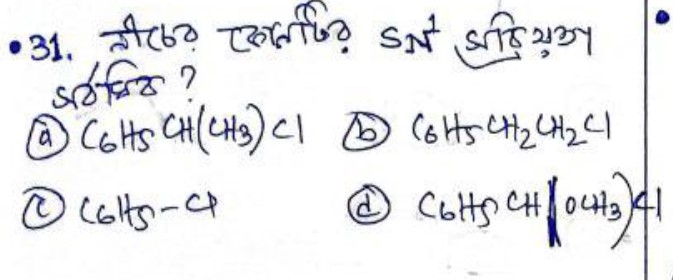 •31. নীচের কোনটির SN¹ সক্রিয়তা
সর্বাধিক ?
ⓐ C6H5 CH(CH3) Cl ⓑ C6H5 CH2 CH2 Cl
ⓒ C6H5-Cl ⓓ C6H5 CH(OCH3)Cl